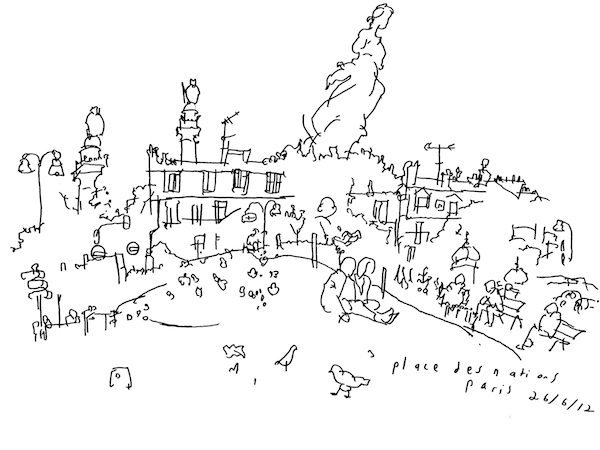 place des nations
paris 26/6/12